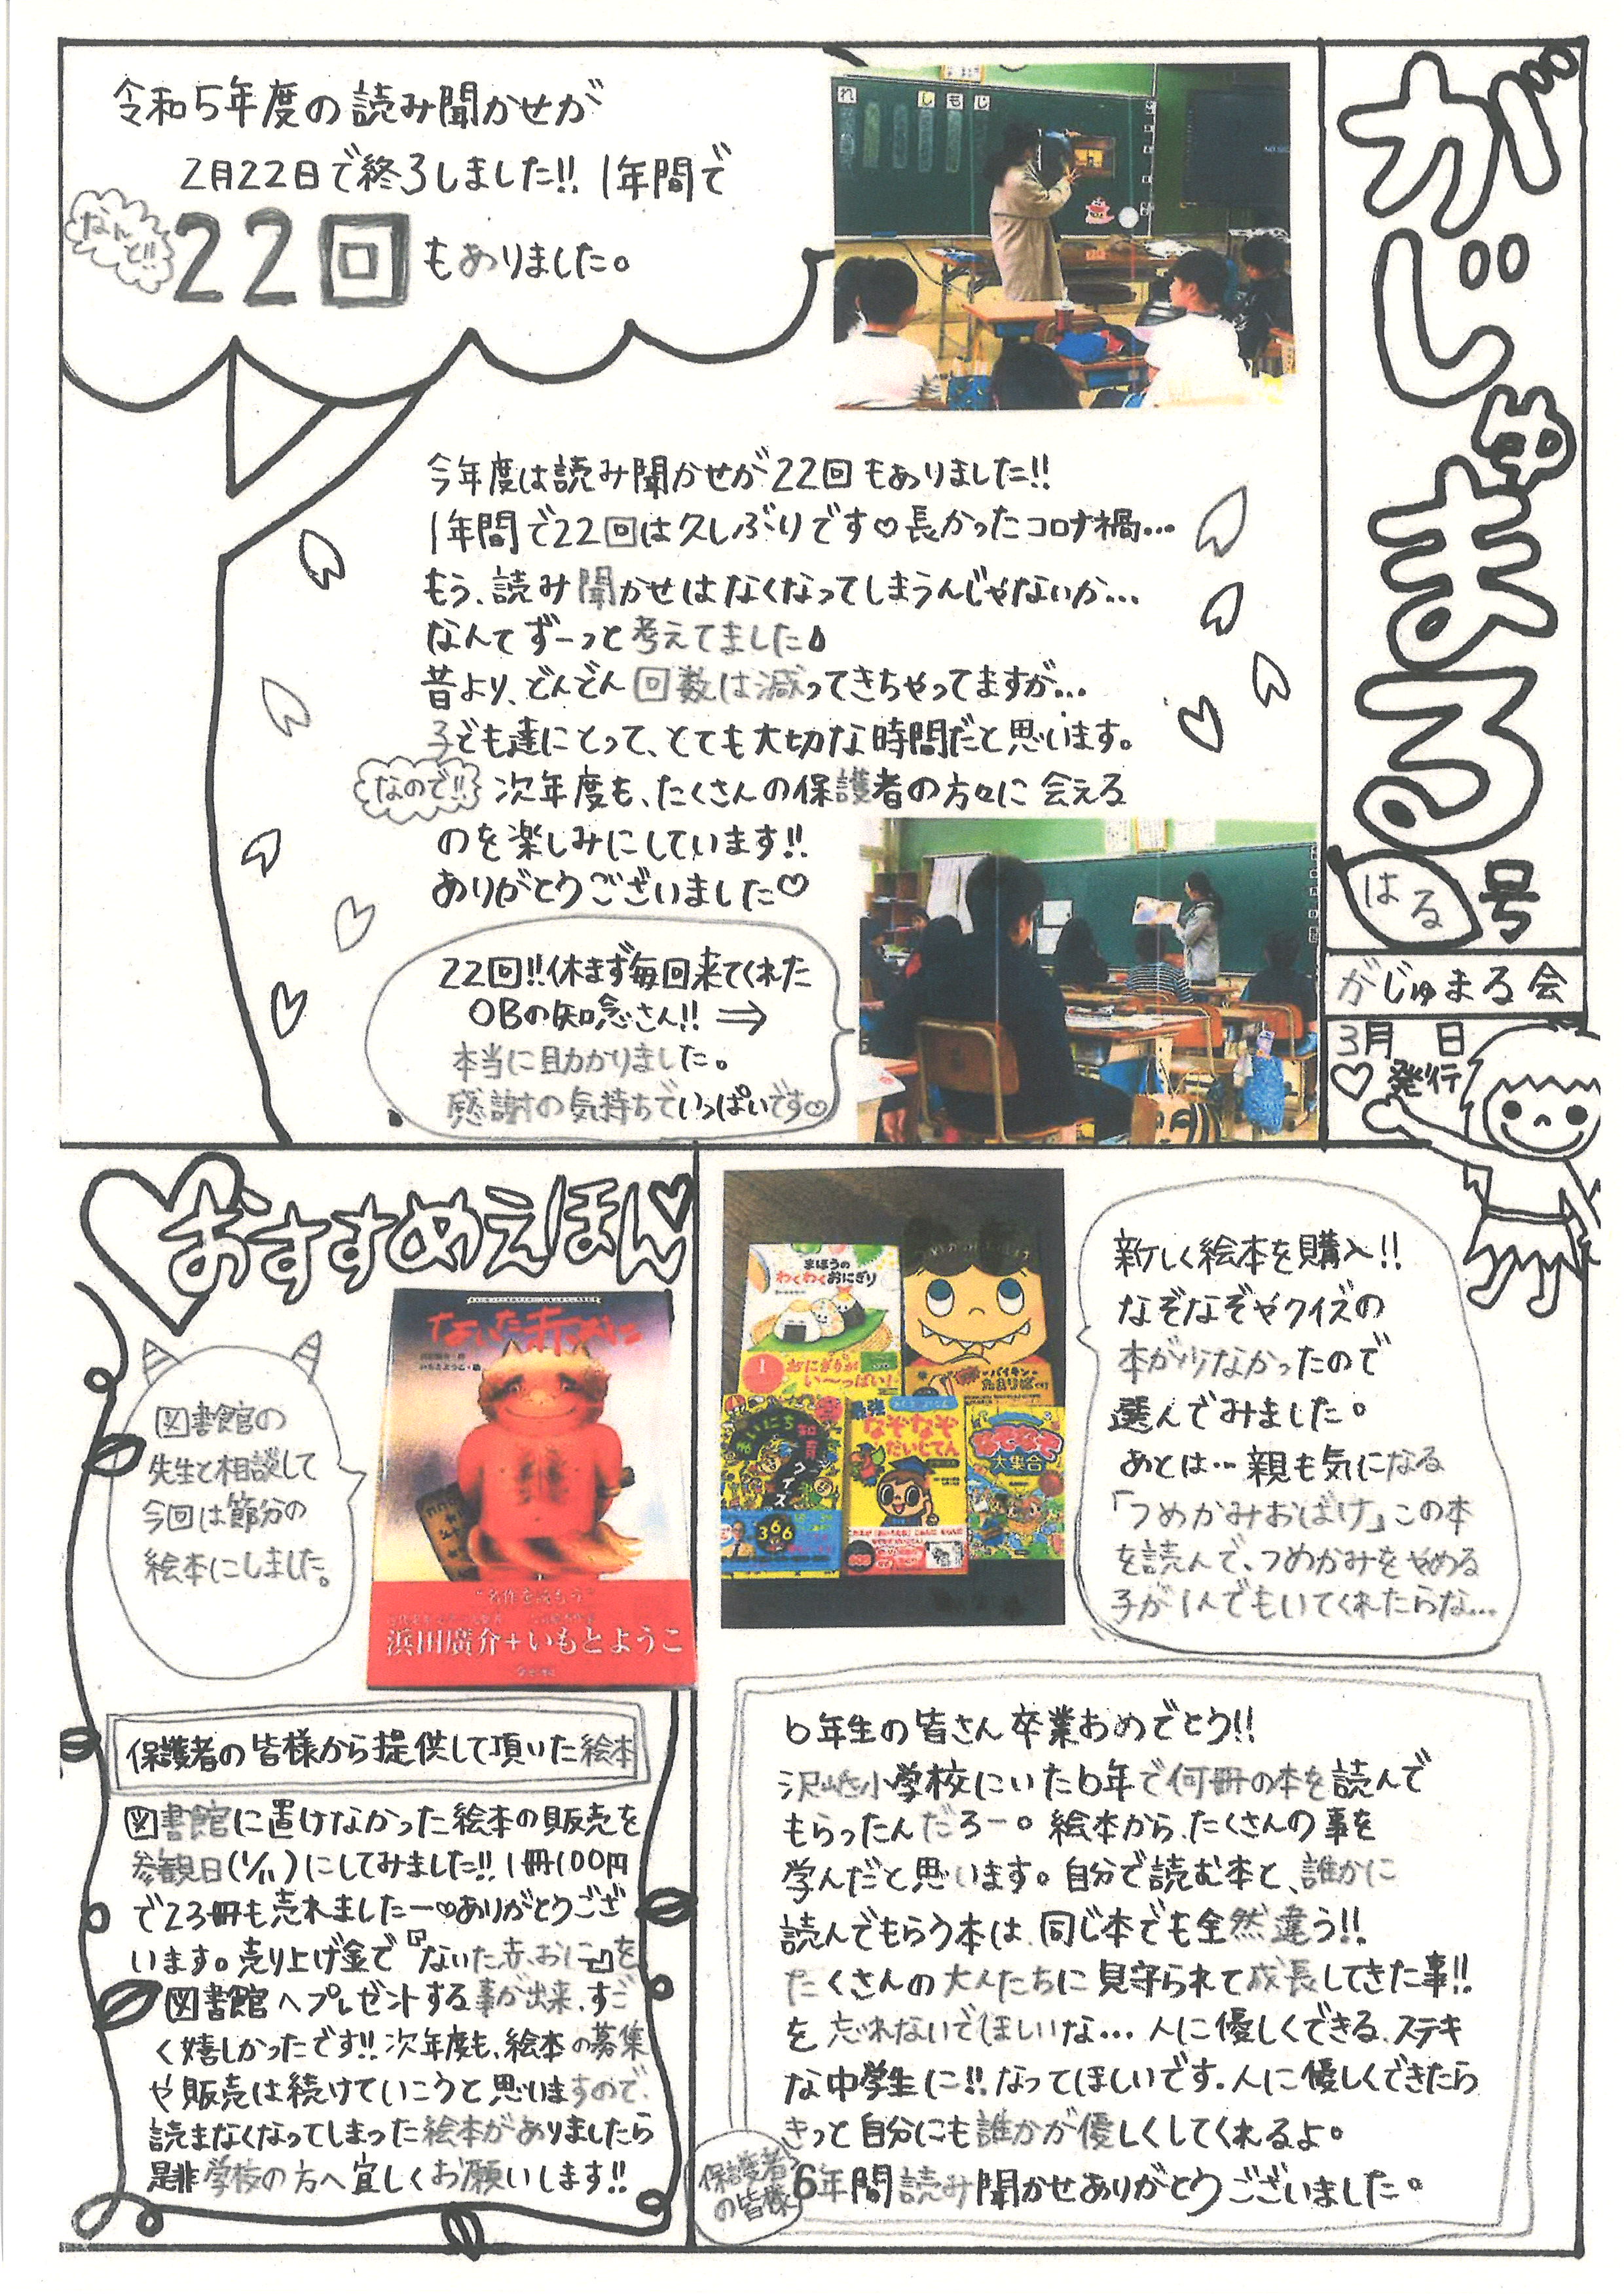 がじゅまる
はる号
がじゅまる会
3月 日
♡発行
令和5年度の読み聞かせが
2月22日で終了しました!! 1年間で
なんと!!
22回もありました。
れ
しもじ
今年度は読み聞かせが22回もありました!!
1年間で22回は久しぶりです♡長かったコロナ禍…
もう、読み聞かせはなくなってしまうんじゃないか…
なんてずーっと考えてました
昔より、どんどん回数は減ってきちゃってますが…
子ども達にとって、とても大切な時間だと思います。
なので!!
次年度も、たくさんの保護者の方々に会える
のを楽しみにしています!!
ありがとうございました♡
22回!!休まず毎回来てくれた
OBの知念さん!! ⇒
本当に助かりました。
感謝の気持ちでいっぱいです♡
おすすめえほん♡
図書館の
先生と相談して
今回は節分の
絵本にしました。
ないた赤おに
浜田廣介・作
いもとようこ・絵
"名作を読もう"
浜田廣介+いもとようこ
保護者の皆様から提供して頂いた絵本
図書館に置けなかった絵本の販売を
参観日(1/11)にしてみました!! 1冊100円
で23冊も売れましたー♡ありがとうござ
います。売り上げ金で『ないた赤おに』を
図書館へプレゼントする事が出来、すご
く嬉しかったです!! 次年度も、絵本の募集
や販売は続けていこうと思いますので、
読まなくなってしまった絵本がありましたら
是非学校の方へ宜しくお願いします!!
まほうの
わくわくおにぎり
おにぎりが
い〜っぱい!
バイキン
まいにち知育クイズ
366
最強
なぞなぞ
だいじてん
なぞなぞ
大集合
新しく絵本を購入!!
なぞなぞやクイズの
本が少なかったので
選んでみました。
あとは…親も気になる
「つめかみおばけ」この本
を読んで、つめかみをやめる
子が1人でもいてくれたらな…
6年生の皆さん卒業おめでとう!!
沢岻小学校にいた6年で何冊の本を読んで
もらったんだろー。絵本から、たくさんの事を
学んだと思います。自分で読む本と、誰かに
読んでもらう本は、同じ本でも全然違う!!
たくさんの大人たちに見守られて成長してきた事!!
を忘れないでほしいな… 人に優しくできる、ステキ
な中学生に!! なってほしいです。人に優しくできたら
きっと自分にも誰かが優しくしてくれるよ。
保護者
の皆様
6年間読み聞かせありがとうございました。